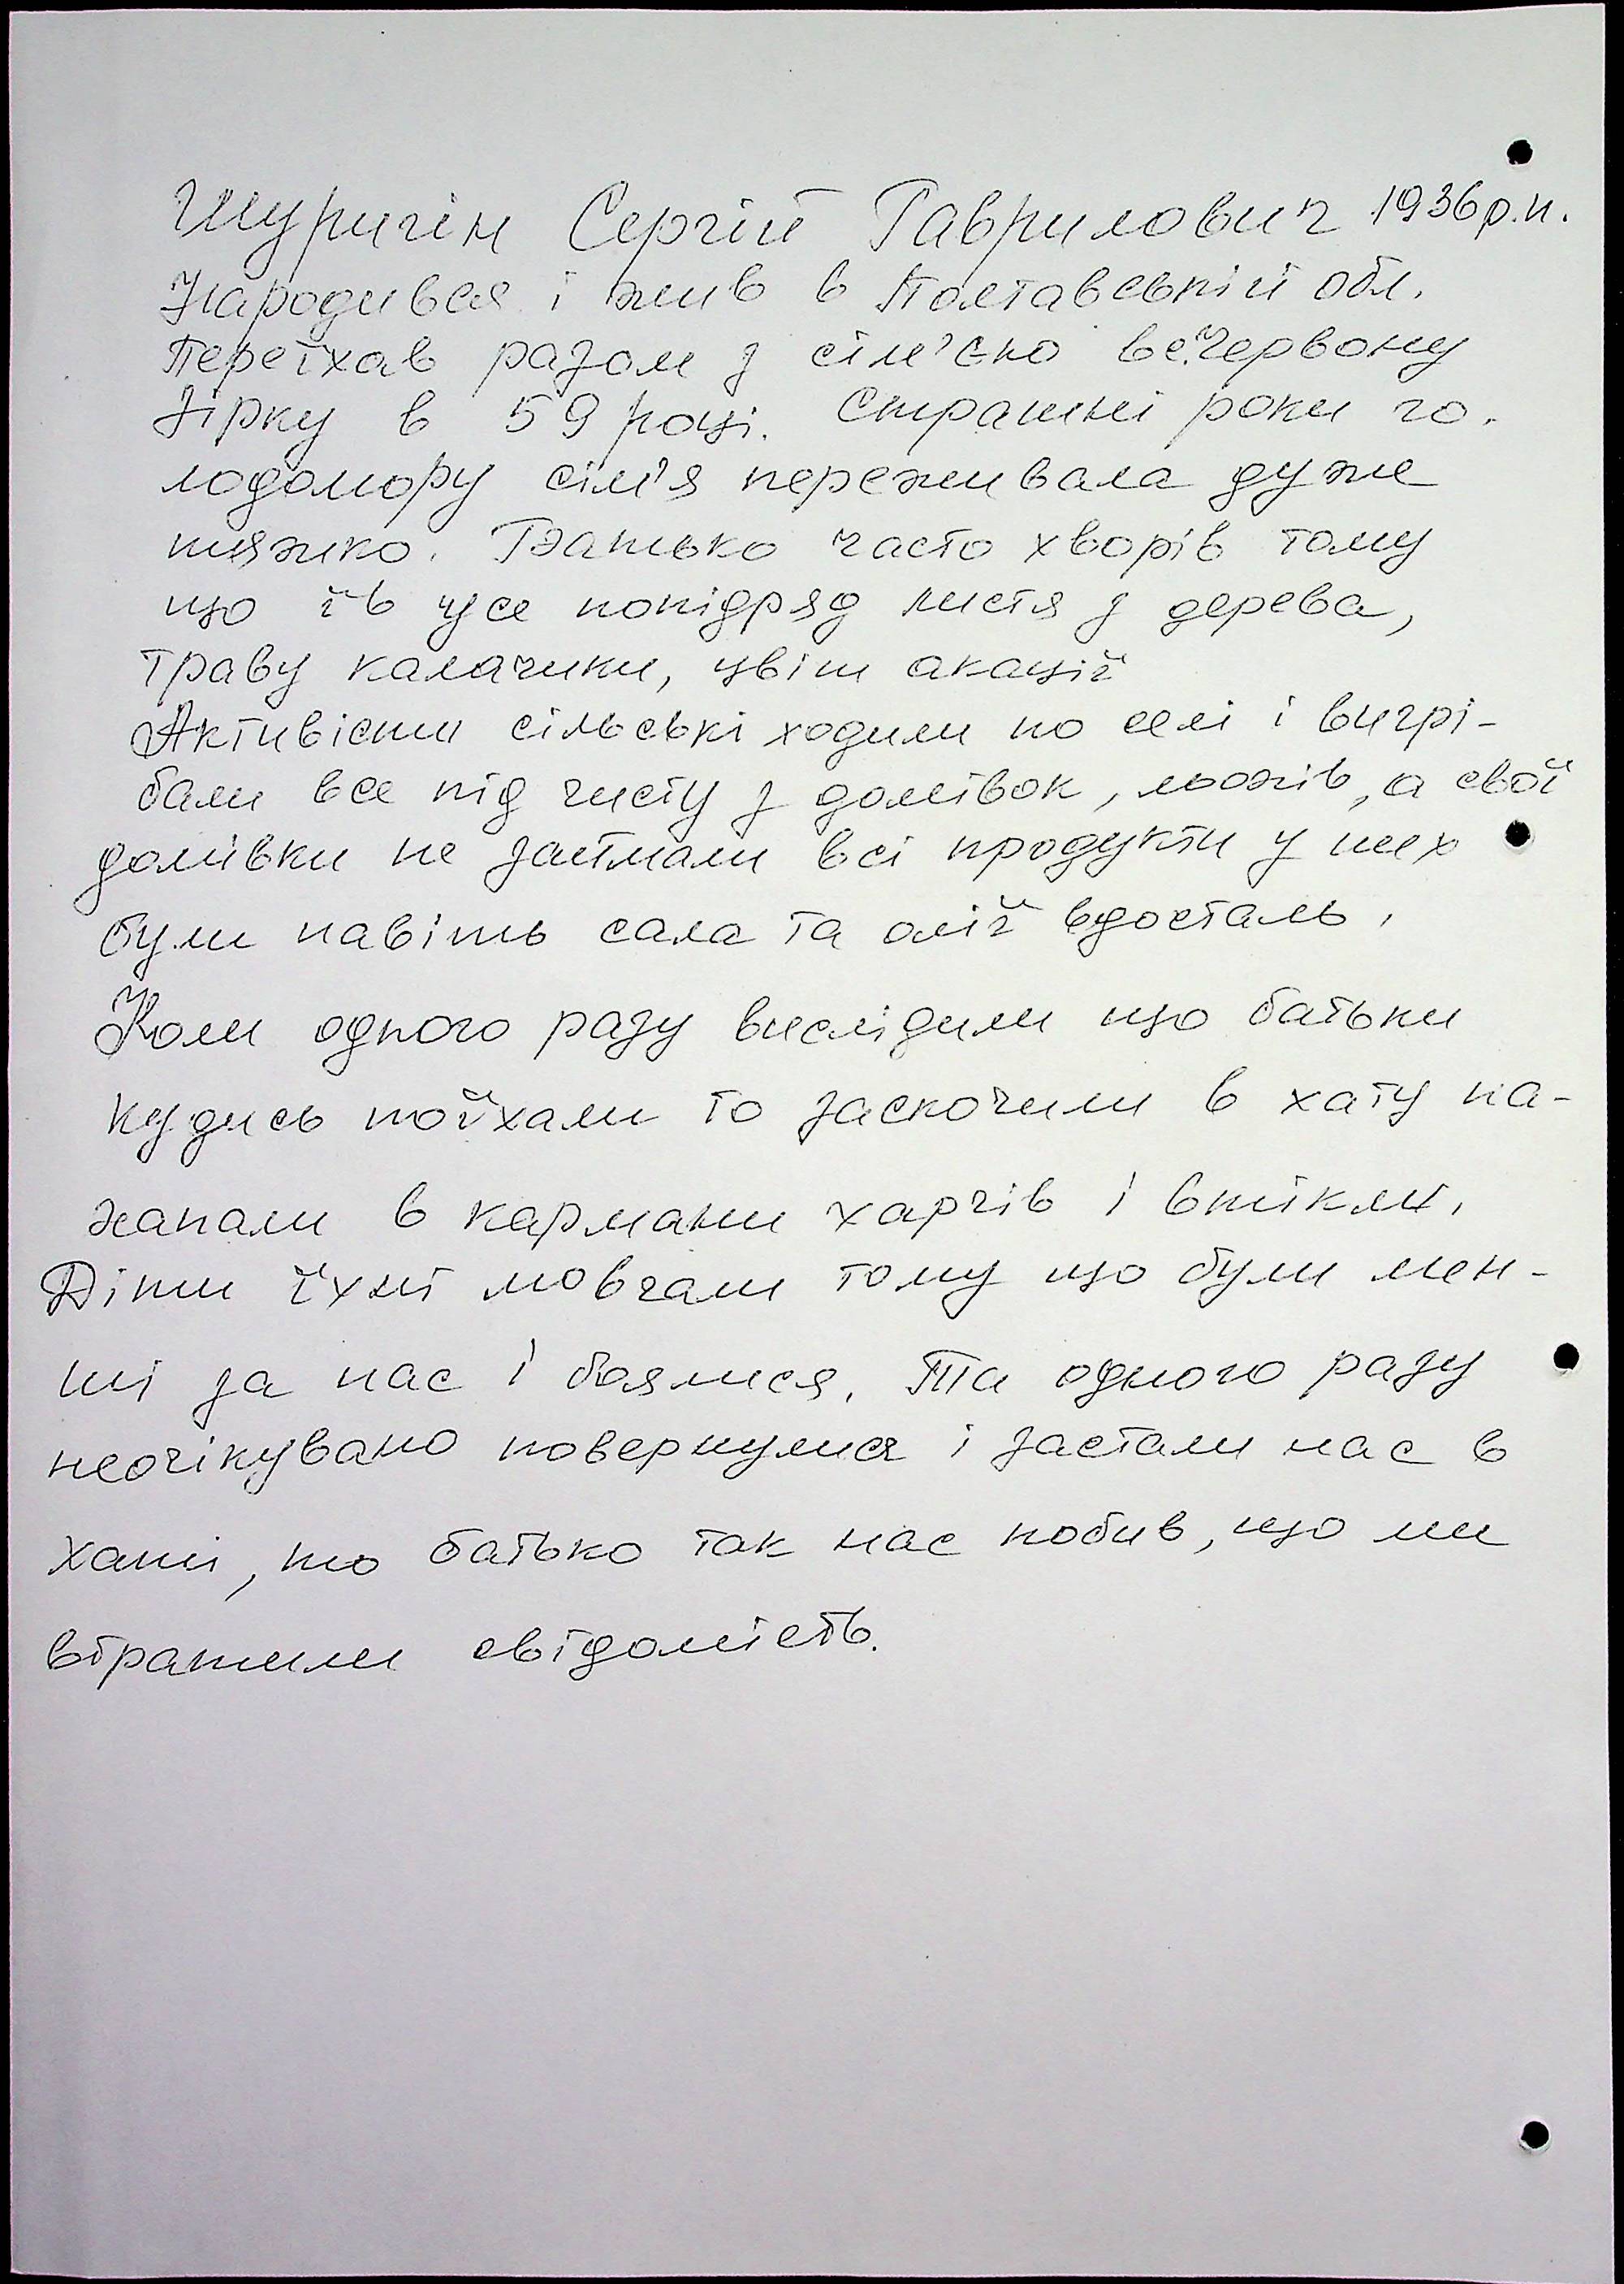 Шуригін Сергій Гаврилович 1936р.н.
Народився і жив в Полтавській обл.
Переїхав разом з сім'єю в с.Червону
Зірку в 59 році. Страшні роки го-
лодомору сім'я переживала дуже
тяжко. Батько часто хворів тому
що їв усе попідряд листя з дерева,
траву калачики, цвіт акації
Активісти сільські ходили по селі і вигрі-
бали все під чисту з домівок, льохів, а свої
домівки не займали всі продукти у них
були навіть сала та олії вдосталь.
Коли одного разу вислідили що батьки
кудись поїхали то заскочили в хату на-
хапали в кармани харчів і втікли.
Діти їхні мовчали тому що були мен-
ші за нас і боялися. Та одного разу
неочікувано повернулися і застали нас в
хаті, то батько так нас побив, що ми
втратили свідомість.